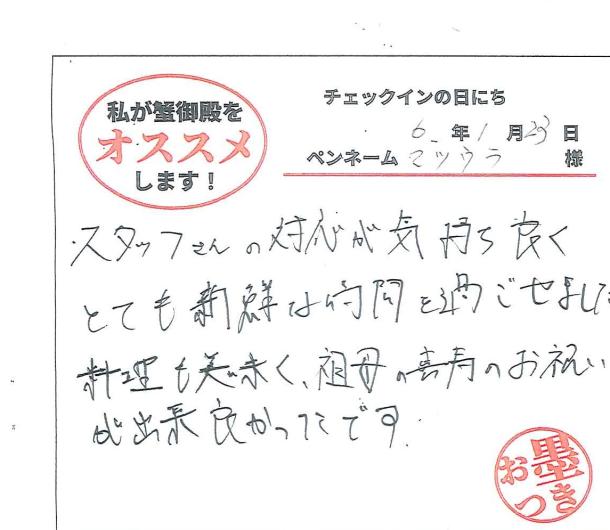 私が蟹御殿を
オススメ
します！
チェックインの日にち
6.年1月23日
ペンネーム マツウラ 様
スタッフさんの対応が気持ち良く
とても新鮮な時間を過ごせました
料理も美味く、祖母の喜寿のお祝い
が出来良かったです。
お墨
つき